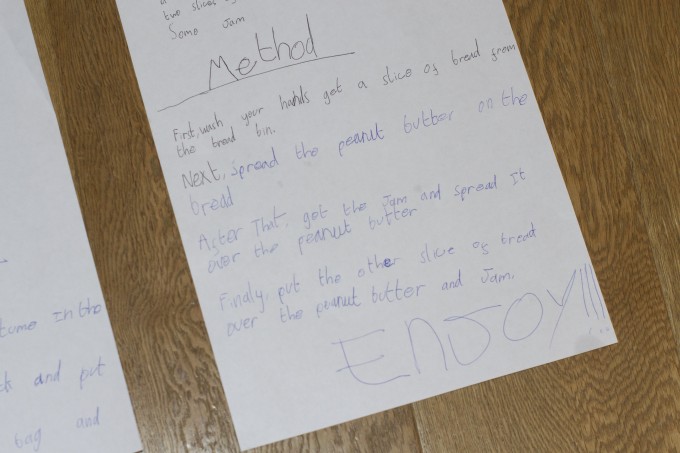 two slices of
Some Jam
Method
First, wash your hands get a slice of bread from
the bread bin.
Next, spread the peanut butter on the
bread
After That, get the Jam and spread It
over the peanut butter
Finaly, put the other slice of bread
over the peanut butter and Jam.
ENJOY!!!
In the
and put
bag and